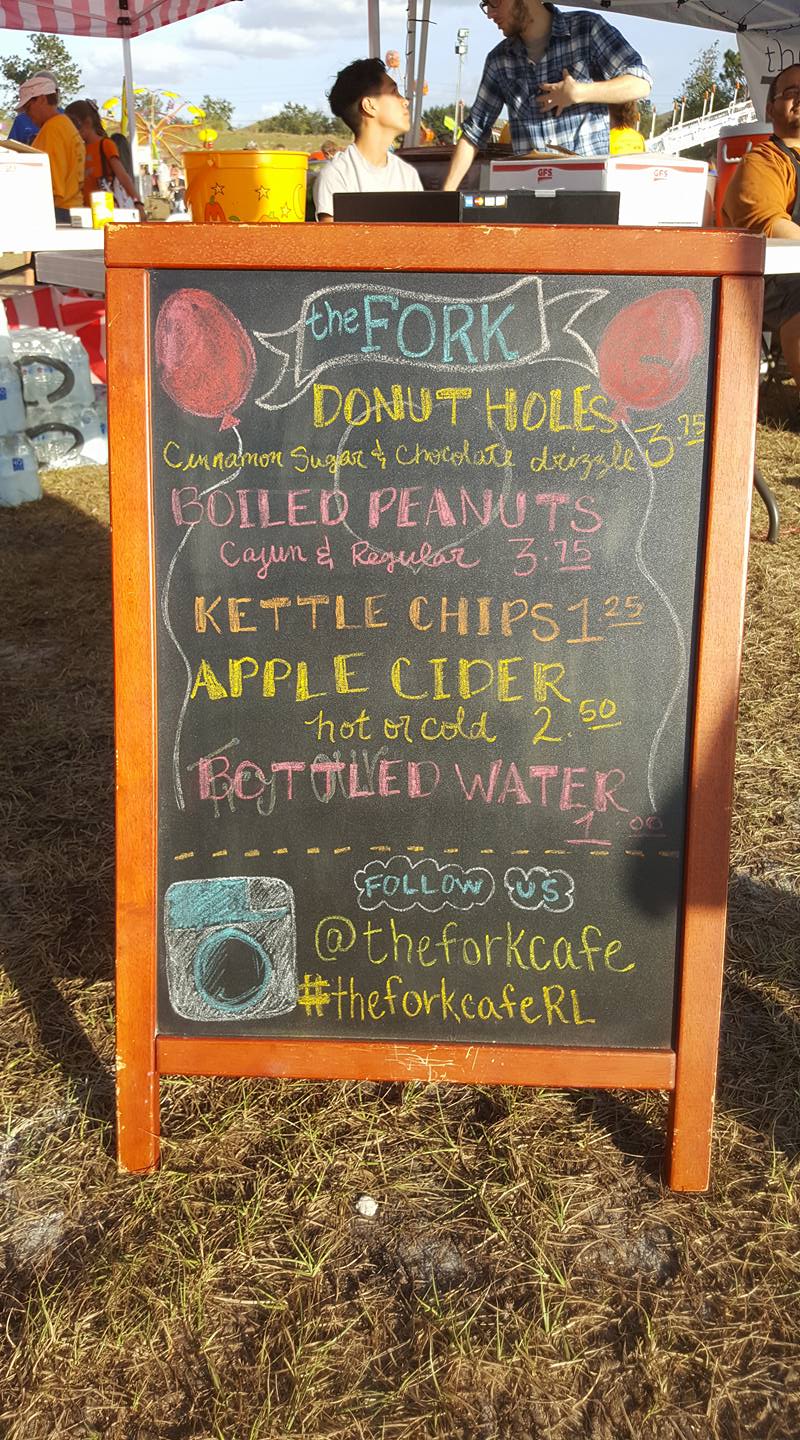 th
GFS
GFS
the FORK
DONUT HOLES
Cinnamon Sugar & Chocolate drizzle 3.75
BOILED PEANUTS
Cajun & Regular 3.75
KETTLE CHIPS 1 25
APPLE CIDER
hot or cold 2.50
BOTTLED WATER
1.00
FOLLOW US
@theforkcafe
#theforkcafeRL